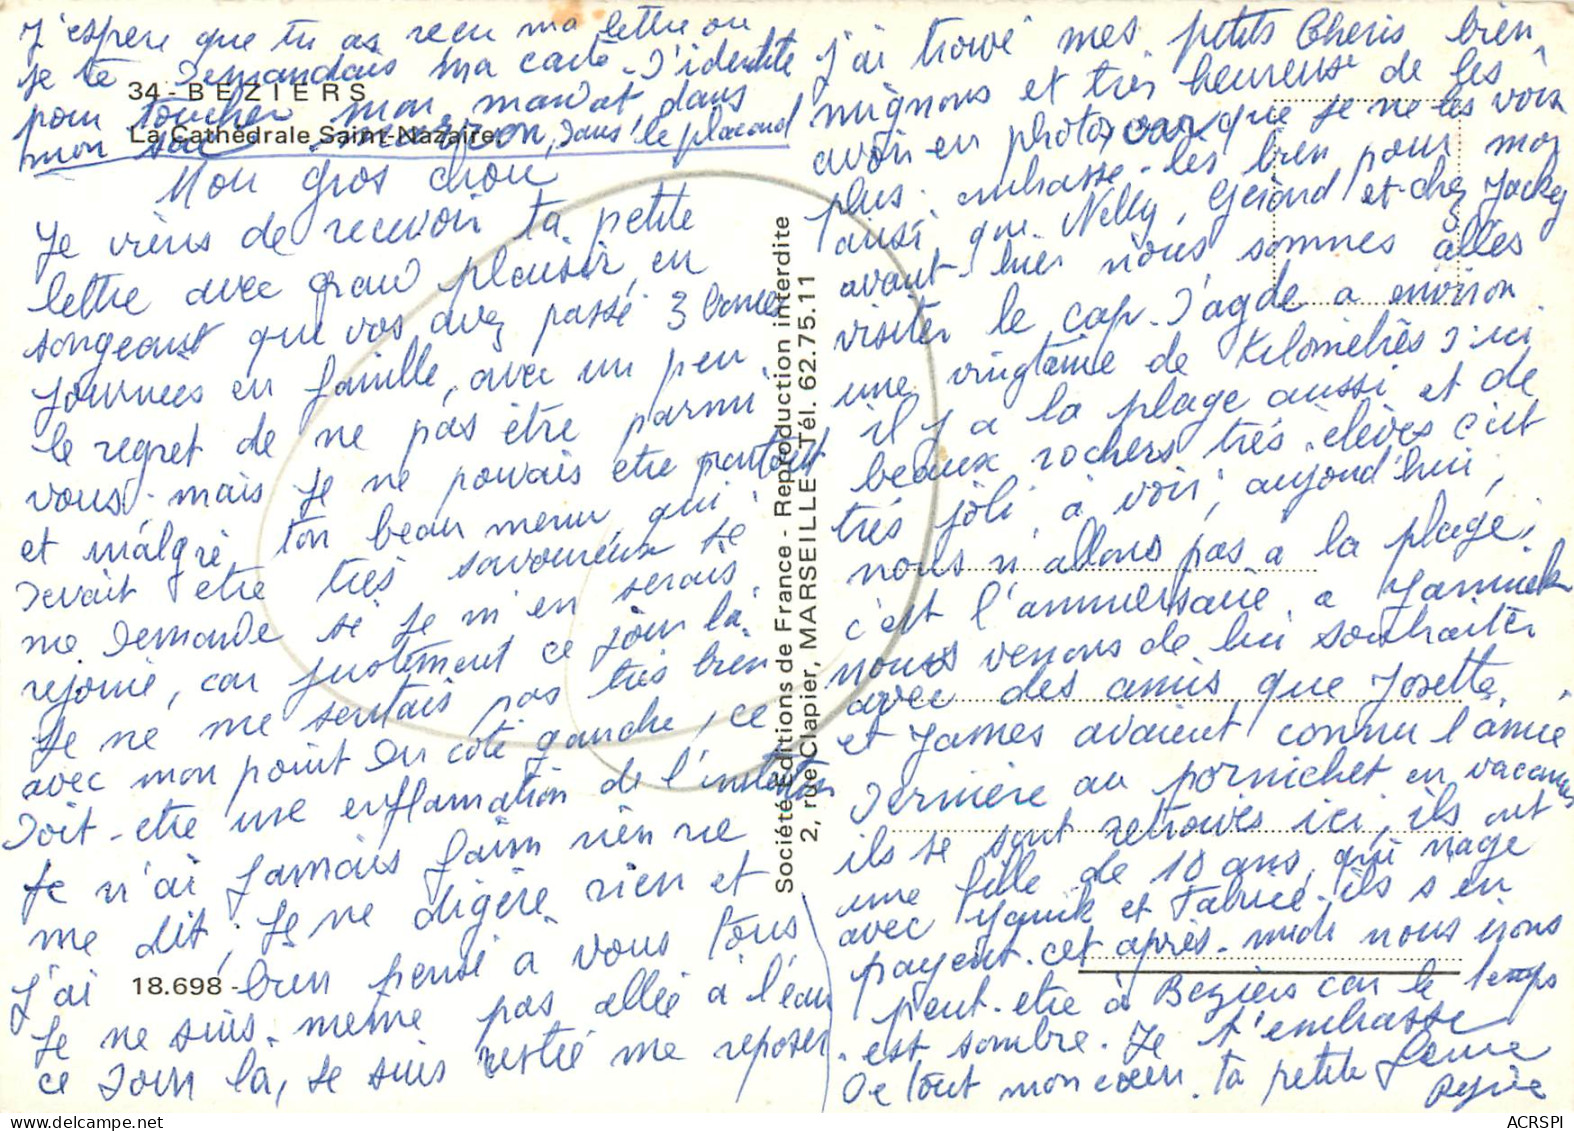 J'espère que tu as reçu ma lettre ou
je te demandais ma carte d'identité
pour toucher mon mandat dans
mon sac marron, dans le placard
34 - BEZIERS
La Cathédrale Saint-Nazaire
Mon gros chou
Je viens de recevoir ta petite
lettre avec grand plaisir, en
songeant que vos avez passé 3 bonnes
journées en famille, avec un peu
le regret de ne pas être parmi
vous. mais je ne pouvais être partout
et malgré ton beau menu, qui
devait être très savoureux je
me demande si je m'en serais
rejouie, car justement ce jour là
Je ne me sentais pas très bien
avec mon point du côté gauche, ce
doit-être une enflamation de l'intestin
je n'ai jamais faim rien ne
me dit, Je ne digère rien et
j'ai bien pensé à vous tous
18.698 -
Je ne suis même pas allée à l'eau
ce jour là, je suis restée me reposer.
Société Editions de France - Reproduction interdite
2, rue Clapier, MARSEILLE Tél. 62.75.11
j'ai trouvé mes petits Cheris bien
mignons et très heureuse de les
avoir en photos, car que je ne les vois
plus. embrasse-les bien pour moi
aussi que Nelly, Gérard et chez Jackey
avant-hier nous sommes allés
visiter le cap d'agde a environ
une vingtaine de Kilomètres d'ici
il y a la plage aussi et de
beaux rochers très élévés c'est
très joli à voir, aujourd'hui,
nous n'allons pas a la plage,
c'est l'anniversaire a Yannick
nous venons de lui souhaiter
avec des amis que Josette
et James avaient connu l'année
dernière au pornichet en vacances
ils se sont retrouvés ici, ils ont
une fille de 10 ans, qui nage
avec Yanick et Fabrice. ils s'en
payent. cet après-midi nous irons
peut-etre à Beziers car le temps
est sombre. Je t'embrasse
De tout mon cœur. ta petite